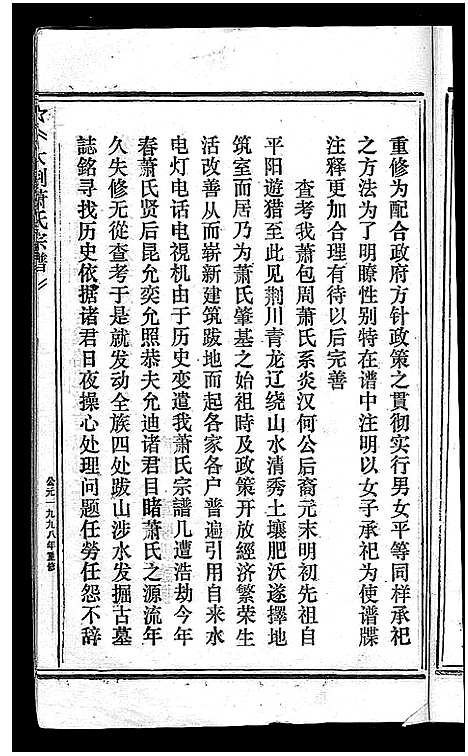 重修为配合政府方针政策之贯彻实行男女平等同样承祀
之方法为了明瞭性别特在谱中注明以女子承祀为使谱牒
注释更加合理有待以后完善
查考我萧包周萧氏系炎汉何公后裔元末明初先祖自
平阳遊猎至此见荆川青龙辽绕山水清秀土壤肥沃遂择地
筑室而居乃为萧氏肇基之始祖時及政策开放經济繁荣生
活改善从而崭新建筑跋地而起各家各户普遍引用自来水
电灯电话电視机由于历史变遣我萧氏宗譜几遭浩劫今年
春萧氏贤后昆允奕允照恭夫允迪诸君目睹萧氏之源流年
久失修无從查考于是就发动全族四处跋山涉水发掘古墓
誌銘寻找历史依据诸君日夜操心处理问题任勞任怨不辞
萧氏宗譜
公元一九九八年重修